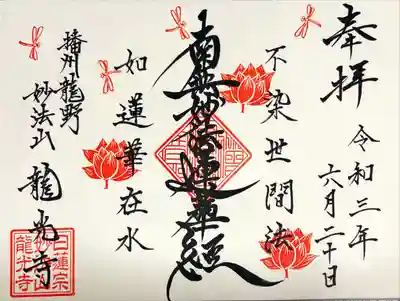 奉拝
令和三年
六月二十日
不染世間法
南無妙法蓮華経
如蓮華在水
播州龍野
妙法山 龍光寺
日蓮宗
妙法山
龍光寺